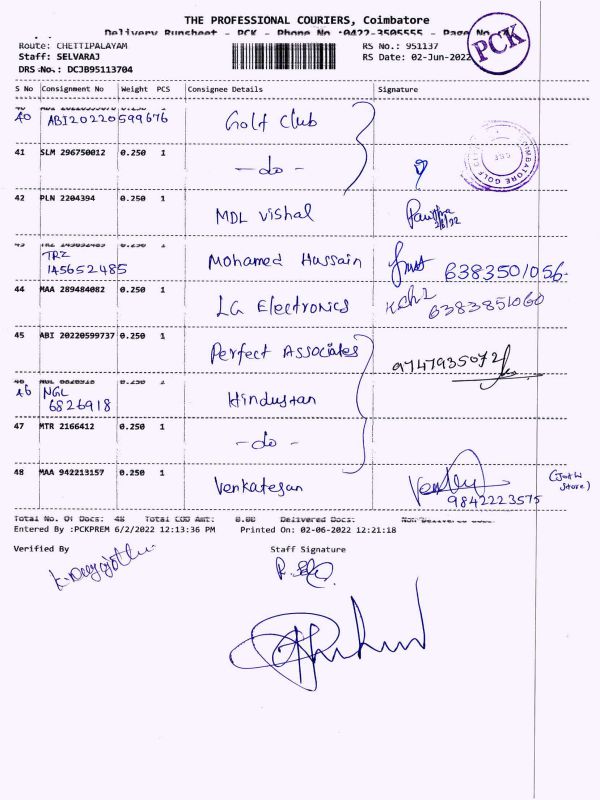 THE PROFESSIONAL COURIERS, Coimbatore
Delivery Runsheet - PCK - Phone No :0422-3505555 - Page No
Route: CHETTIPALAYAM RS No.: 951137
Staff: SELVARAJ RS Date: 02-Jun-2022
DRS No.: DCJB95113704
PCK
S No Consignment No Weight PCS Consignee Details Signature
40 ABI20220599676 Golf Club
41 SLM 296750012 0.250 1 -do-
COIMBATORE GOLF
42 PLN 2204394 0.250 1 MDL Vishal
43 TRZ 145652485 0.250 1 Mohamed Hussain 6383501056-
44 MAA 289484082 0.250 1 LG Electronics 6383851060
45 ABI 20220599737 0.250 1 Perfect Associates 9747935072
46 NGL 6826918 0.250 1 Hindustan
47 MTR 2166412 0.250 1 -do-
48 MAA 942213157 0.250 1 Venkatesan 9842223575
Total No. Of Docs: 48 Total COD Amt: 0.00 Delivered Docs:
Entered By :PCKPREM 6/2/2022 12:13:36 PM Printed On: 02-06-2022 12:21:18
Verified By Staff Signature